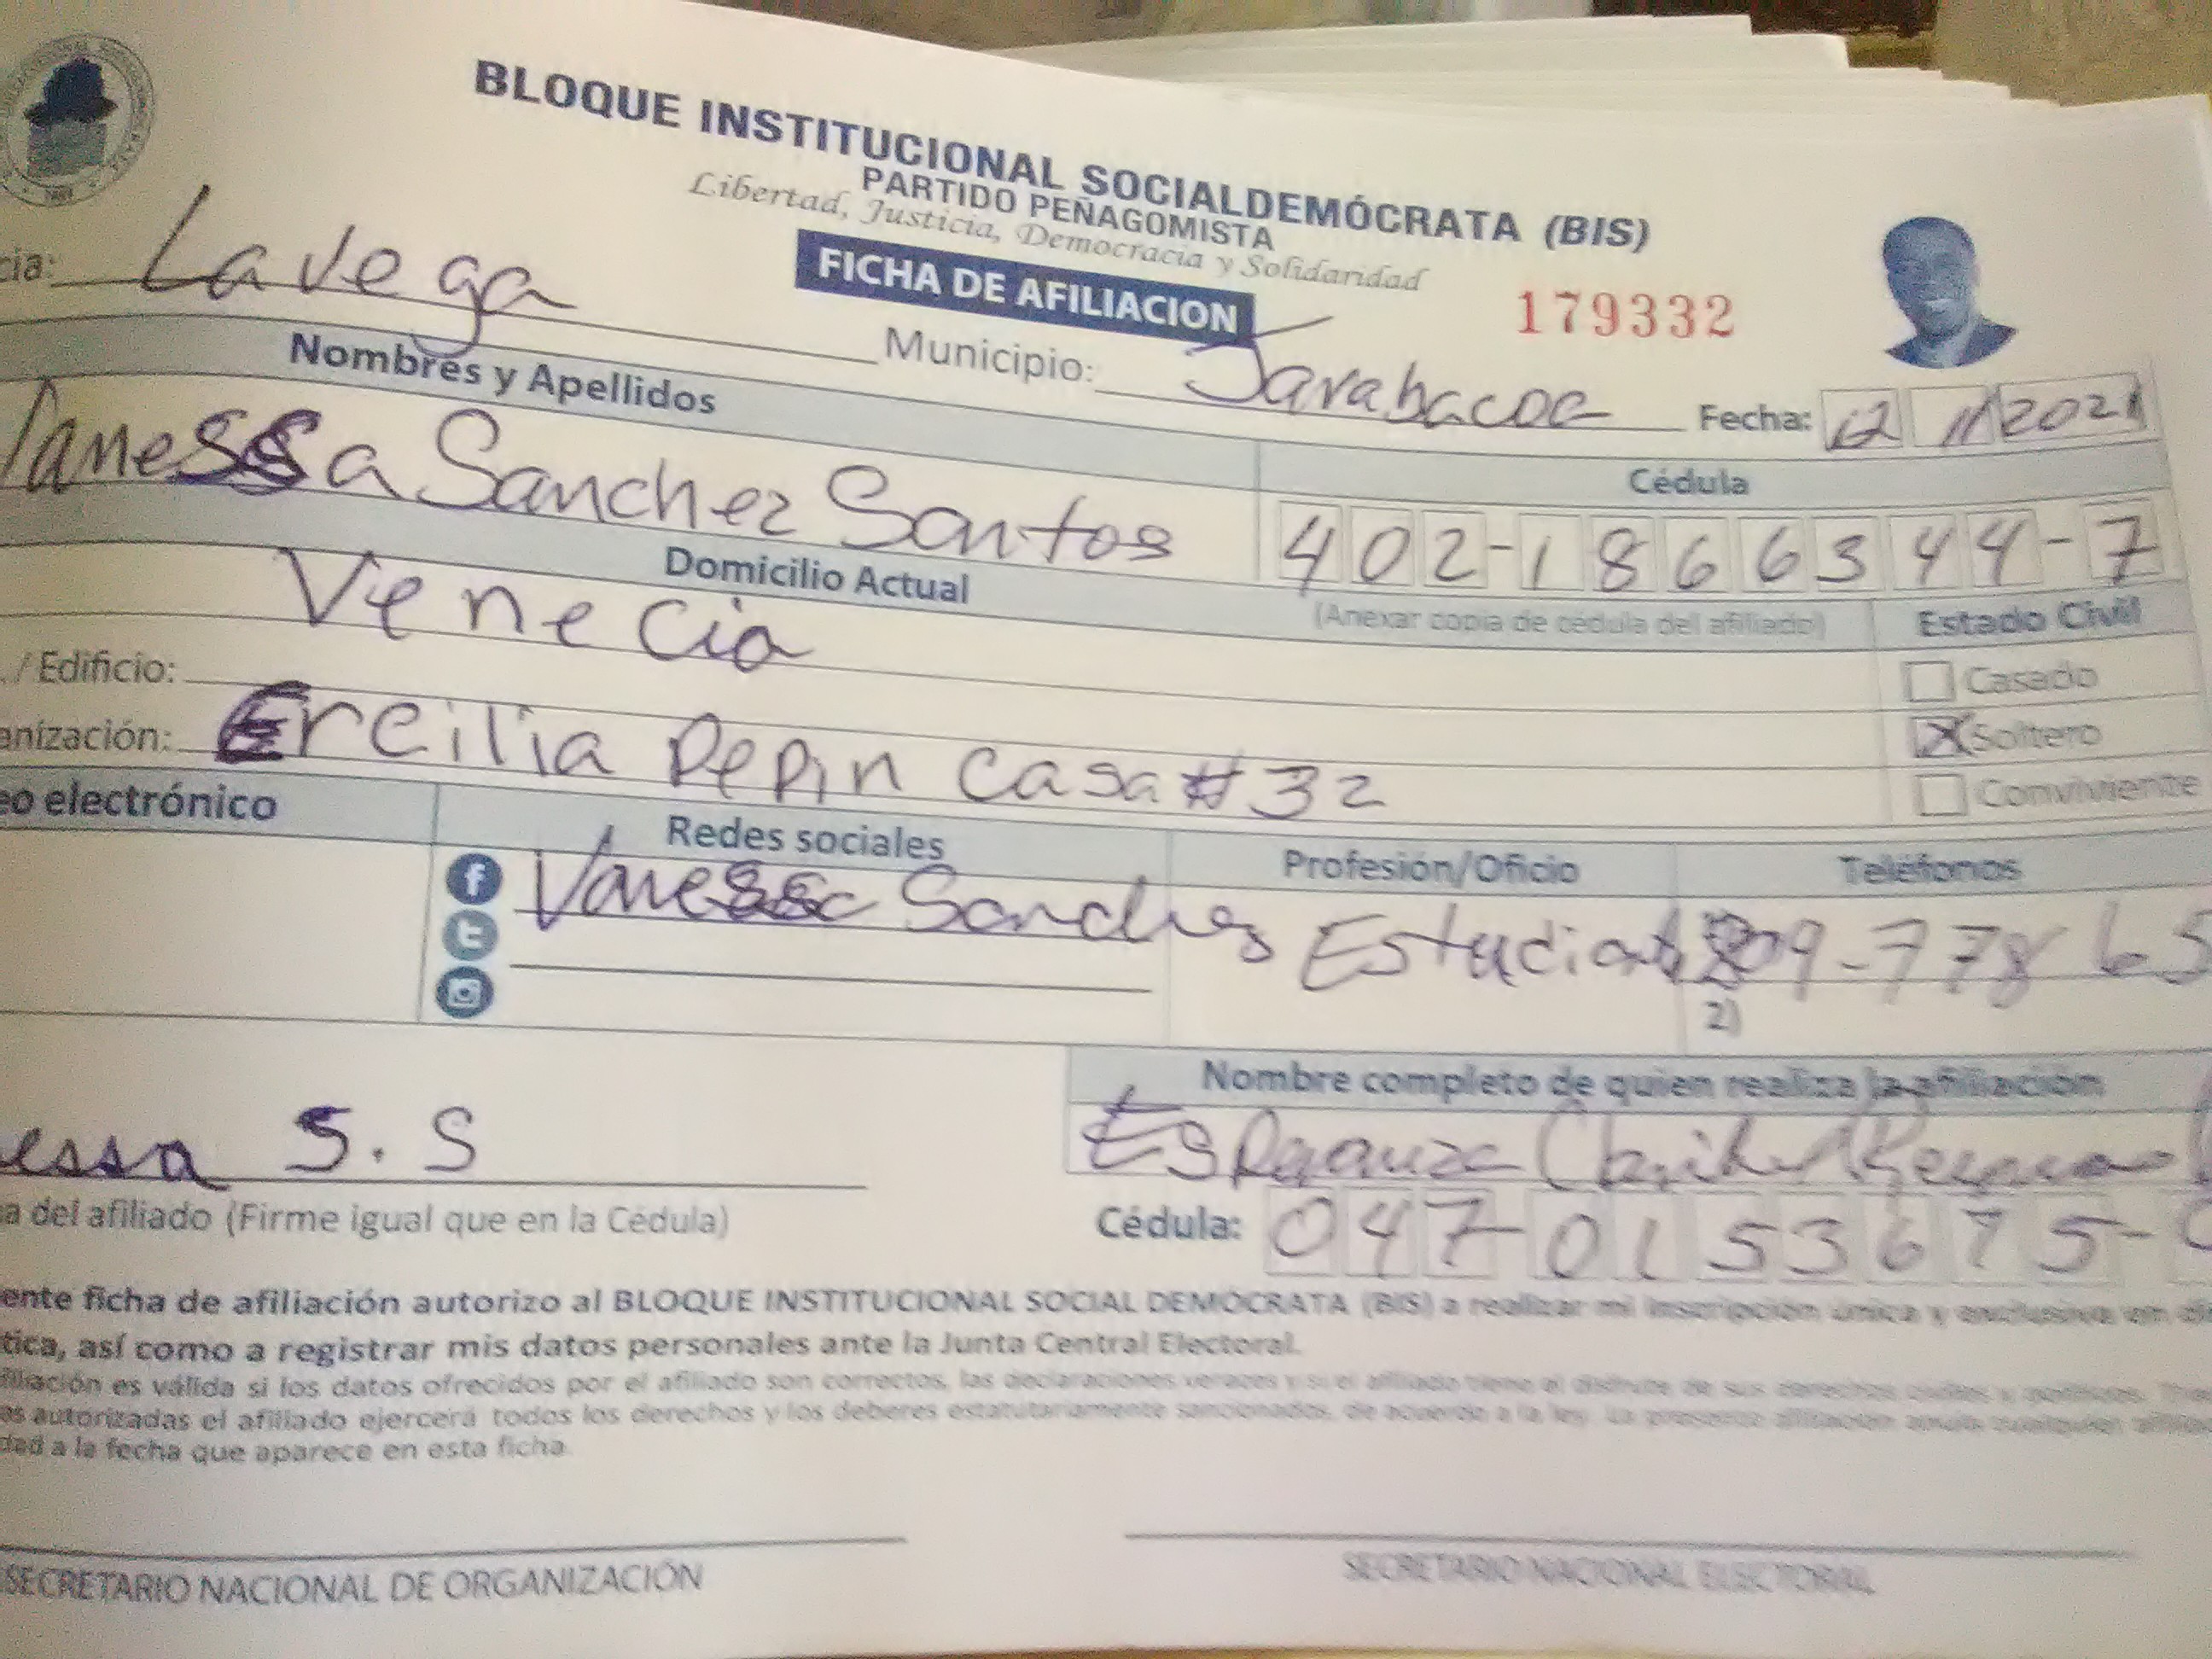 BLOQUE INSTITUCIONAL SOCIALDEMÓCRATA (BIS)
PARTIDO PEÑAGOMISTA
Libertad, Justicia, Democracia y Solidaridad
FICHA DE AFILIACION
179332
cia: La Vega
Municipio: Jarabacoa
Fecha: 12 11 2021
Nombres y Apellidos
Vanessa Sanchez Santos
Cédula
402-1866344-7
(Anexar copia de cédula del afiliado)
Domicilio Actual
Venecia
/ Edificio:
anización: Ercilia Pepin casa # 32
Estado Civil
Casado
X Soltero
Conviviente
eo electrónico
Redes sociales
Vanessa Sanchez
Profesión/Oficio
Teléfonos
809-778 65
2)
essa S. S
a del afiliado (Firme igual que en la Cédula)
Nombre completo de quien realiza la afiliación
Cédula: 047-0153675-
ente ficha de afiliación autorizo al BLOQUE INSTITUCIONAL SOCIAL DEMÓCRATA (BIS) a realizar mi inscripción única y exclusiva en
tica, así como a registrar mis datos personales ante la Junta Central Electoral.
filiación es válida si los datos ofrecidos por el afiliado son correctos, las declaraciones veraces y si el afiliado tiene el disfrute de sus derechos civiles y políticos.
as autorizadas el afiliado ejercerá todos los derechos y los deberes estatutariamente sancionados, de acuerdo a la ley. La presente afiliación anula cualquier
dad a la fecha que aparece en esta ficha
SECRETARIO NACIONAL DE ORGANIZACIÓN
SECRETARIO NACIONAL ELECTORAL